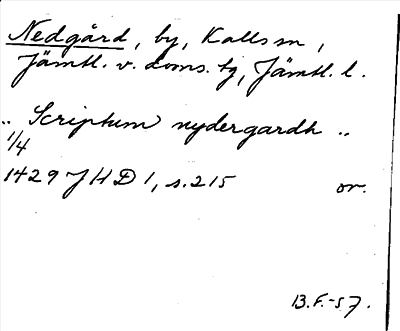 Nedgård, by, Kalls sn,
Jämtl. v. doms. tg, Jämtl. l.
„ Scriptum nydergardh „
1/4
1429 JHD 1, s. 215 or.
B.F.-57.